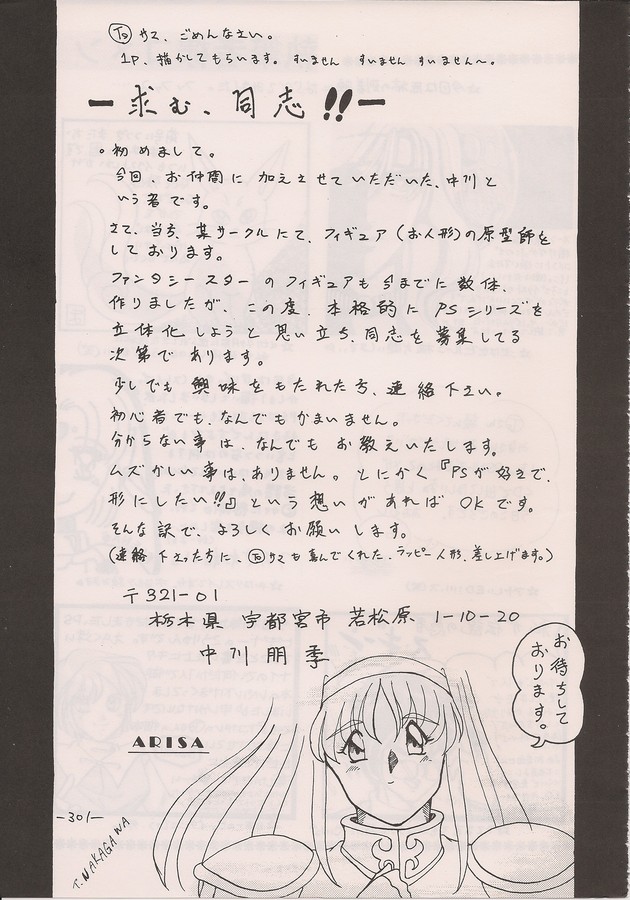 サマ、ごめんなさい。
1P、描かしてもらいます。すいません すいません すいません〜。
ー求む、同志!!ー
。初めまして。
今回、お仲間に加えさせていただいた、中川と
いう者です。
さて、当方、某サークルにて、フィギュア(お人形)の原型師を
しております。
ファンタシースターのフィギュアも今までに数体、
作りましたが、この度、本格的にPSシリーズを
立体化しようと思い立ち、同志を募集してる
次第であります。
少しでも興味をもたれた方、連絡下さい。
初心者でも、なんでもかまいません。
分からない事は、なんでもお教えいたします。
ムズかしい事は、ありません。とにかく『PSが好きで、
形にしたい!!』という想いがあればOKです。
そんな訳で、よろしくお願いします。
(連絡下さった方に、サマも喜んでくれた、ラッピー人形、差し上げます。)
〒321-01
栃木県宇都宮市若松原1-10-20
中川朋季
お待ちして
おります。
ARISA
-301-
T.NAKAGAWA